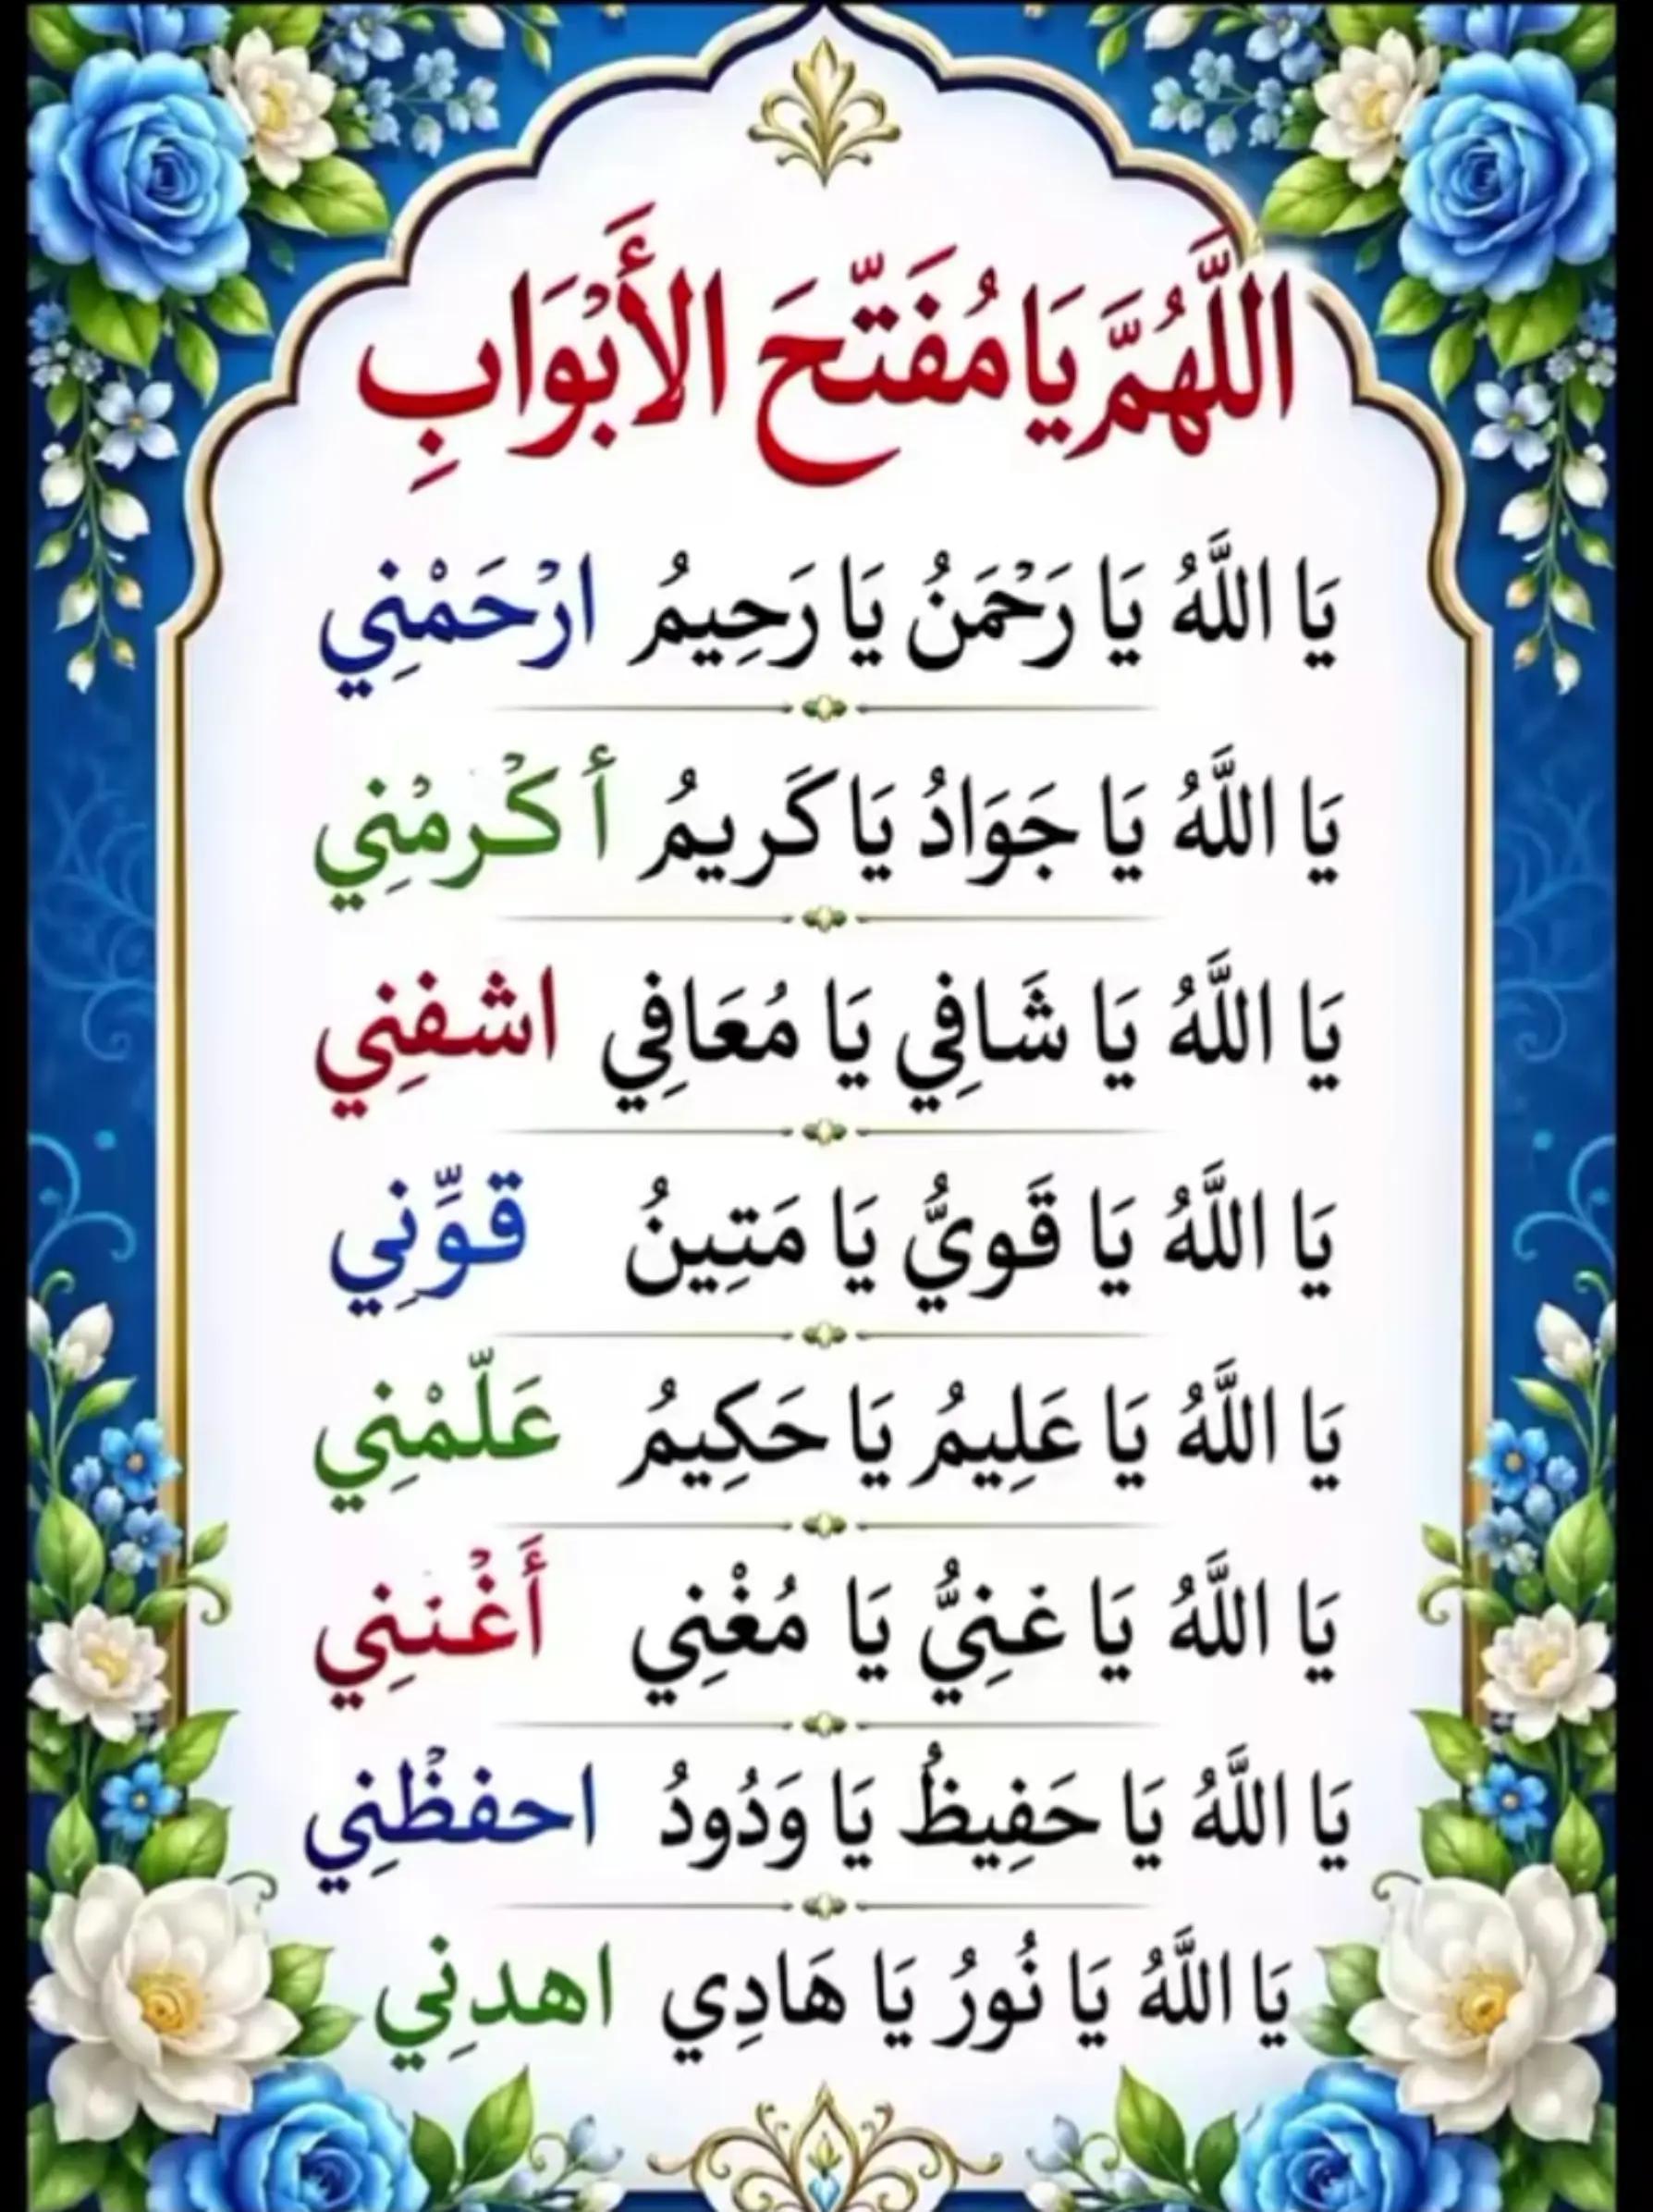 اللَّهُمَّ يَا مُفَتِّحَ الأَبْوَابِ
يَا اللَّهُ يَا رَحْمَنُ يَا رَحِيمُ ارْحَمْنِي
يَا اللَّهُ يَا جَوَادُ يَا كَرِيمُ أكْرمْنِي
يَا اللَّهُ يَا شَافِي يَا مُعَافِي اشفِنِي
يَا اللَّهُ يَا قَويُّ يَا مَتِينُ قوِّنِي
يَا اللَّهُ يَا عَلِيمُ يَا حَكِيمُ عَلّمْنِي
يَا اللَّهُ يَا غَنِيُّ يَا مُغْنِي أَغْننِي
يَا اللَّهُ يَا حَفِيظُ يَا وَدُودُ احفظْنِي
يَا اللَّهُ يَا نُورُ يَا هَادِي اهدنِي